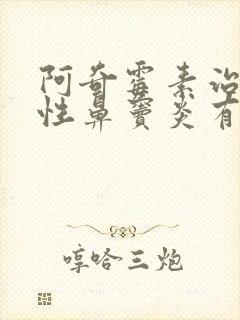 阿奇霉素治
性鼻窦炎有
哼哈三炮